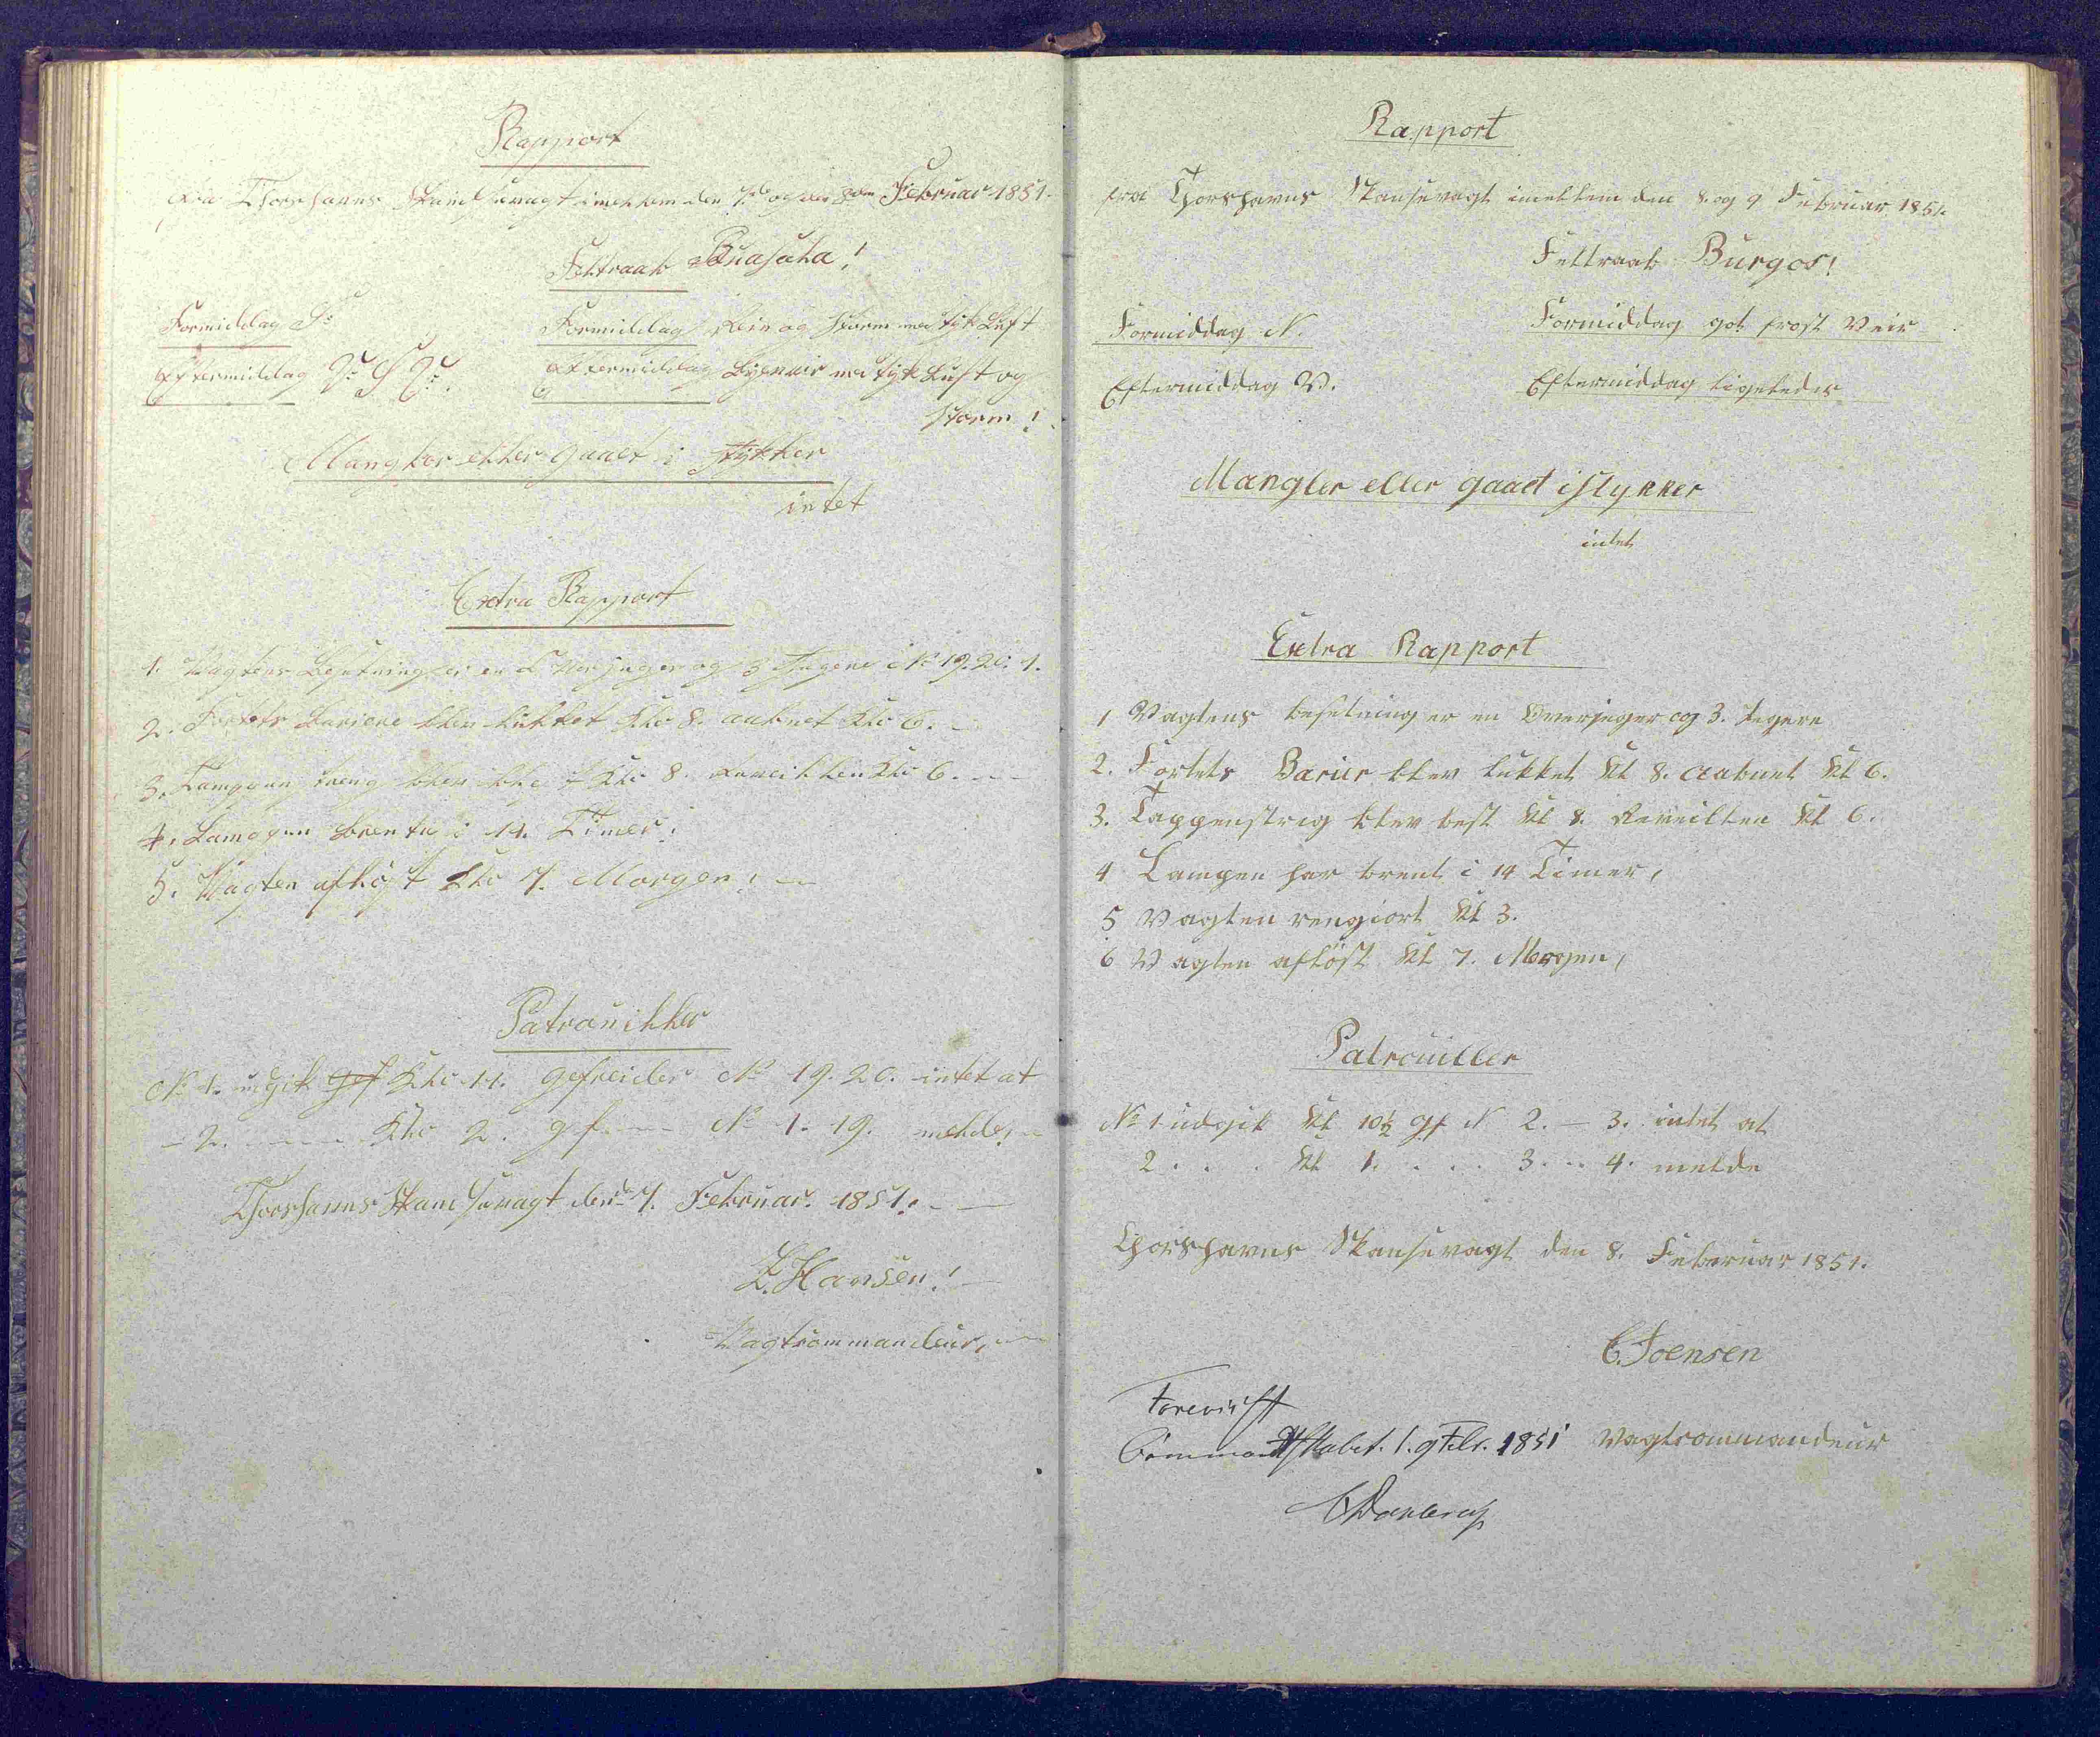 Rapport
fra Thorshavns Skandsevagt imellem den 7de og den 8de Februar 1851.
Feltraab
Formiddag S:
Formiddag Rein og Storm med tyk Luft
Eftermiddag V: S V:.
Eftermiddag Bygeveir med tyk Luft og
Storm!
Mangler eller gaaet i stykker
intet
Extra Rapport
1. Vagtens Besetning er en Overjæger og 3 Jægere No 19. 20. 1.
2. Fortets Bariere blev lukket Klo 8. aabnet Klo 6.
3. Klo 8. Reveillen Klo 6.
4. Lampen brente i 14. Timer.
5. Vagten afløst Klo 7. Morgen!
Patrouiller
No 1. udgik gef Klo 11. gefreider No 19. 20. intet at
- 2. - - - Klo 2. gf. - - - No 1. 19. melde!
Thorshavns Skandsevagt den 7. Februar. 1851.
Z. Hansen!
Vagtcommandeur,
Rapport
fra Thorshavns Skansevagt imellem den 8. og 9 Februar 1851.
Feltraab Burgos!
Formiddag N.
Formiddag got frost Veir
Eftermiddag V.
Eftermiddag ligeledes
Mangler eller gaaet istykker
intet
Extra Rapport
1 Vagtens besetning er en Overjeger og 3. Jegere
2. Fortets Barier blev lukket Kl 8. aabnet Kl 6.
3. Tappenstreg blev best Kl 8. Reveillen Kl 6.
4 Lampen har brent i 14 Timer,
5 Vagten rengiort Kl 3.
6 Vagten afløst Kl 7. Morgen,
Patrouiller
No 1 udgik Kl 10½ gf N 2. — 3. intet at
2 . . . Kl 1. . . . 3. .. 4. melde
Thorshavns Skansevagt den 8. Februar 1851.
C. Joensen
Forevist
Commandtskabet. d. 9 Febr. 1851 Vagtcommandeur
CDahlerup